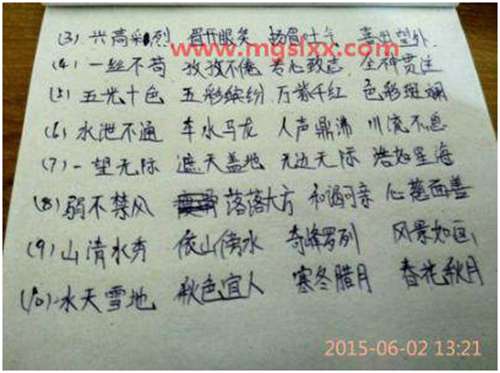 www.mgslxx.com
(3) 兴高采烈 眉开眼笑 扬眉吐气 喜出望外
(4) 一丝不苟 孜孜不倦 专心致志 全神贯注
(5) 五光十色 五彩缤纷 万紫千红 色彩斑斓
(6) 水泄不通 车水马龙 人声鼎沸 川流不息
(7) 一望无际 遮天盖地 无边无际 浩如星海
(8) 弱不禁风 落落大方 和谒可亲 心慈面善
(9) 山清水秀 依山傍水 奇峰罗列 风景如画
(10) 水天雪地 秋色宜人 寒冬腊月 春花秋月
2015-06-02 13:21